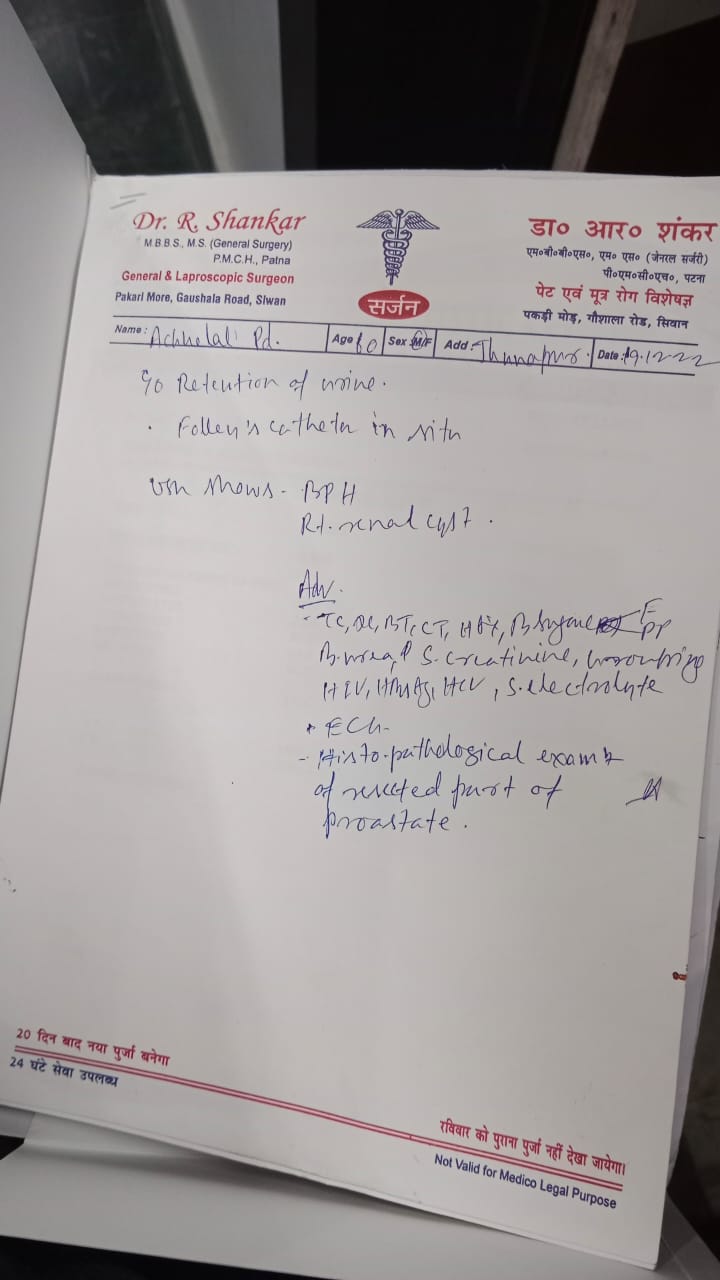 Dr. R. Shankar
M.B.B.S., M.S. (General Surgery)
P.M.C.H., Patna
General & Laproscopic Surgeon
Pakari More, Gaushala Road, Siwan
सर्जन
डा० आर० शंकर
एम०बी०बी०एस०, एम० एस० (जेनरल सर्जरी)
पी०एम०सी०एच०, पटना
पेट एवं मूत्र रोग विशेषज्ञ
पकड़ी मोड़, गौशाला रोड, सिवान
Name: Achhelal Pd. Age 60 Sex M/F Add: Date: 19.12.22
c/o Retention of urine.
. Folley's catheter in situ
USG shows - BPH
Rt. renal cyst.
Adv.
- TC, DC, BT, CT, HB%, B. Sugar F
PP
B. urea, S. creatinine,
HIV, HBsAg, HCV, S. electrolyte
• ECG
- Histo-pathological exam
of resected part of
proastate.
20 दिन बाद नया पुर्जा बनेगा
24 घंटे सेवा उपलब्ध
रविवार को पुराना पुर्जा नहीं देखा जायेगा।
Not Valid for Medico Legal Purpose